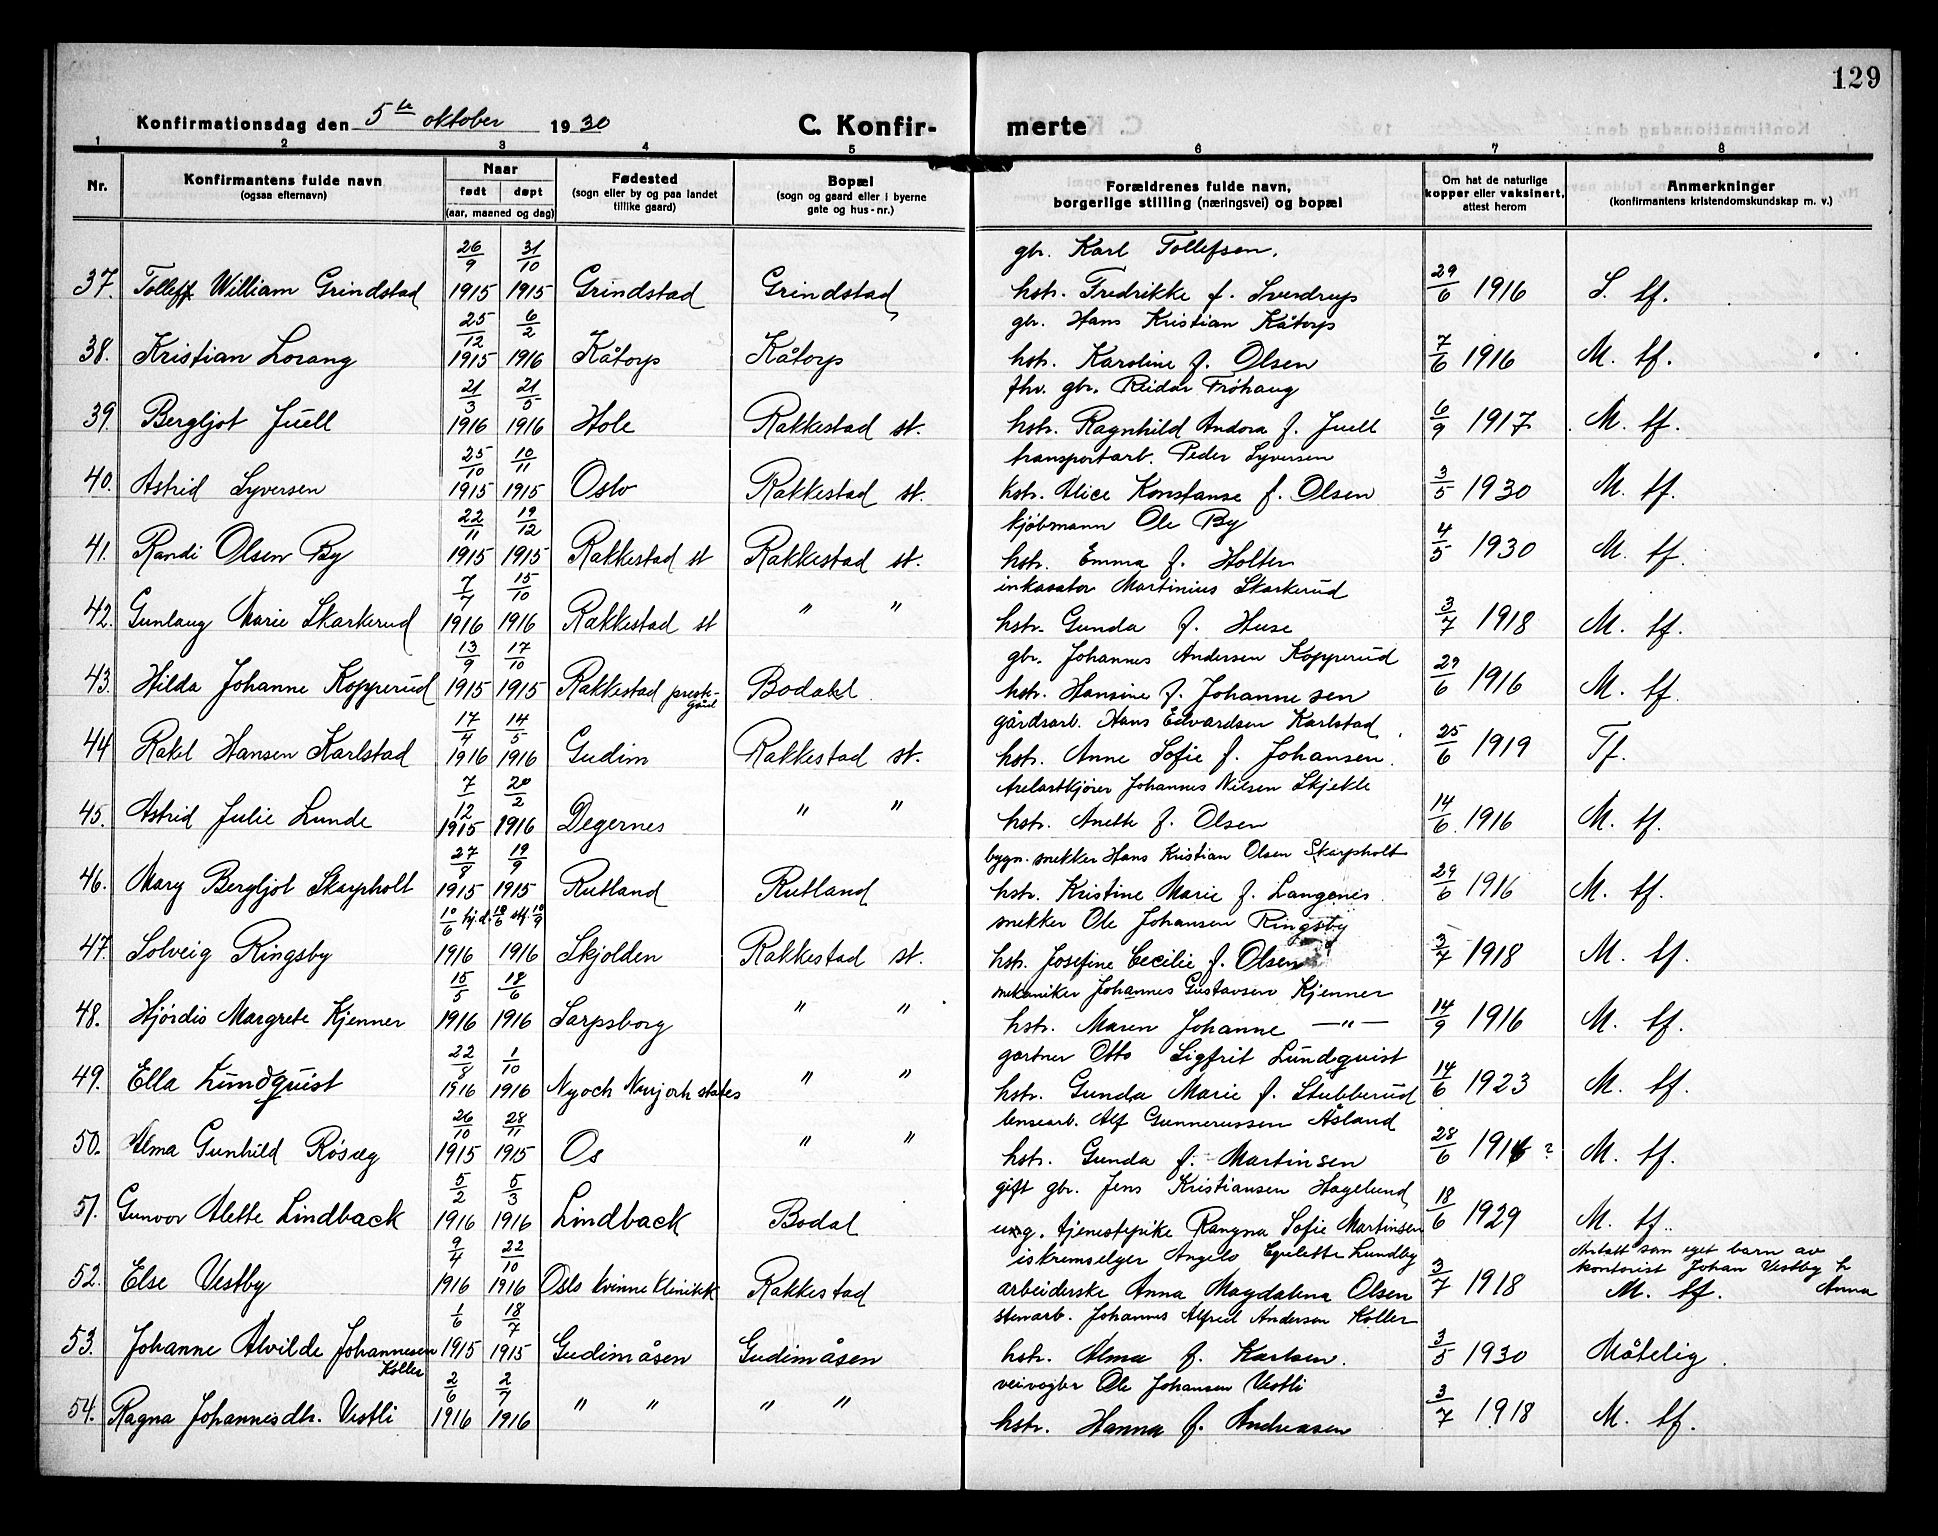 129
Konfirmationsdag den 5te oktober 1930 C. Konfir- merte
1 2 3 4 5 6 7 8
Nr.
Konfirmantens fulde navn
(ogsaa efternavn)
Naar
født døpt
(aar, maaned og dag)
Fødested
(sogn eller by og paa landet
tillike gaard)
Bopæl
(sogn og gaard eller i byerne
gate og hus-nr.)
Forældrenes fulde navn,
borgerlige stilling (næringsvei) og bopæl
Om hat de naturlige
kopper eller vaksinert,
attest herom
Anmerkninger
(konfirmantens kristendomskundskap m. v.)
26/9 31/10 gbr. Karl Tollefsen.
37. Tolleff William Grindstad 1915 1915 Grindstad Grindstad hstr. Fredrikke f. Sverdrup 29/6 1916 S. tf.
25/12 6/2 gbr. Hans Kristian Kåtorp
38. Kristian Lorang 1915 1916 Kåtorp Kåtorp hstr. Karoline f. Olsen 7/6 1916 M. tf.
21/3 21/5 fhv. gbr. Reidar Frøhaug
39. Bergljot Juell 1916 1916 Hole Rakkestad st. hstr. Ragnhild Andora f. Juell 6/9 1917 M. tf.
25/10 10/11 transportarb. Peder Syversen
40. Astrid Syversen 1915 1915 Oslo Rakkestad st. hstr. Alice Konstanse f. Olsen 3/5 1930 M. tf.
22/11 19/12 kjøbmann Ole By
41. Randi Olsen By 1915 1915 Rakkestad st Rakkestad st. hstr. Emma f. Holter 4/5 1930 M. tf.
7/7 15/10 inkasator Martinius Skarkerud
42. Gunlaug Marie Skarkerud 1916 1916 Rakkestad st " " hstr. Gunda f. Huse 3/7 1918 M. tf.
13/9 17/10 gbr. Johannes Andersen Kopperud
43. Hilda Johanne Kopperud 1915 1915 Rakkestad preste-
gård Bodahl hstr. Hansine f. Johannesen 29/6 1916 M. tf.
17/4 14/5 gårdsarb. Hans Edvardsen Karlstad
44 Rakel Hansen Karlstad 1916 1916 Gudim Rakkestad st. hstr. Anne Sofie f. Johansen. 25/6 1919 Tf.
7/12 20/2 Johannes Nilsen Skjekle
45. Astrid Julie Lunde 1915 1916 Degernes " " hstr. Anette f. Olsen 14/6 1916 M. tf.
27/8 19/9 bygn. snekker Hans Kristian Olsen Skarpholt
46. Mary Bergljot Skarpholt 1915 1915 Rutland Rutland hstr. Kristine Marie f. Langenes 29/6 1916 M. tf.
10/6 hj.d. 10/6 stf. 10/9 snekker Ole Johansen Ringsby
47. Solveig Ringsby 1916 1916 Skjolden Rakkestad st. hstr. Josefine Cecilie f. Olsen 3/7 1918 M. tf.
15/5 18/6 mekaniker Johannes Gustavsen Kjenner
48. Hjørdis Margrete Kjenner 1916 1916 Sarpsborg " " hstr. Maren Johanne —"— 14/9 1916 M. tf.
22/8 1/10 gartner Otto Sigfrit Lundquist
49. Ella Lundquist 1916 1916 Nyoch Nurjorh states " " hstr. Gunda Marie f. Stubberud 14/6 1923 M. tf.
26/10 28/11 lensearb. Alf Gunnerussen Åsland
50. Alma Gunhild Røsæg 1915 1915 Os " " hstr. Gunda f. Martinsen 28/6 1916 ? M. tf.
5/2 5/3 gift gbr. Jens Kristiansen Hagelund
51. Gunvor Alette Lindback 1916 1916 Lindback Bodal ug. tjenestepike Rangna Sofie Martinsen 18/6 1929 M. tf.
9/4 22/10 iskremselger Angelo Lundby Antatt som eget barn av
kontorist Johan Vestby h
52. Else Vestby 1916 1916 Oslo kvinne klinikk Rakkestad arbeiderske Anna Magdalena Olsen 3/7 1918 M. tf. Anna
1/6 18/7 stenarb. Johannes Alfred Andersen Koller
53. Johanne Alvilde Johannesen
Koller 1915 1915 Gudimåsen Gudimåsen hstr. Alma f. Karlsen. 3/5 1930 Måtelig.
2/6 2/7 veivogter Ole Johansen Vestli
54. Ragna Johannesdtr. Vestli 1916 1916 " " " " hstr. Hanna f. Andreasen 3/7 1918 M. tf.